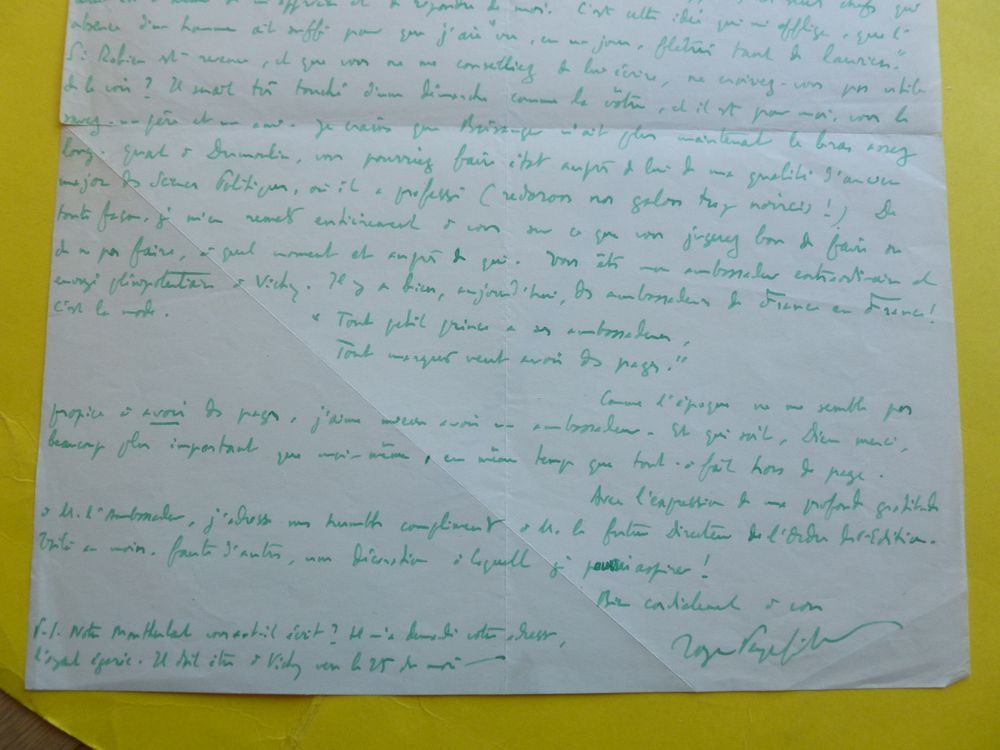 absence d'un homme ait suffi pour que j'aie vu, en un jour, flétrir tant de lauriers."
Si Robien est revenu, et que vous ne me conseilliez de lui écrire, ne croiriez-vous pas utile
de le voir? Il serait très touché d'une démarche comme la vôtre, et il est pour moi, vous le
savez, un père et un ami. Je crains que Brissanger n'ait plus maintenant le bras assez
long. Quant à Dumoulin, vous pourriez faire état auprès de lui de ma qualité d'ancien
major des Sciences Politiques, où il a professé (redorons nos galons trop noircis!) De
toute façon, je m'en remets entièrement à vous sur ce que vous jugerez bon de faire ou
de ne pas faire, à quel moment et auprès de qui. Vous êtes mon ambassadeur extraordinaire et
envoyé plénipotentiaire à Vichy. Il y a bien, aujourd'hui, des ambassadeurs de France en France!
C'est la mode.
" Tout petit prince a ses ambassadeurs,
Tout marquis veut avoir des pages."
Comme l'époque ne me semble pas
propice à avoir des pages, j'aime mieux avoir un ambassadeur. Et qui soit, Dieu merci,
beaucoup plus important que moi-même, en même temps que tout-à-fait hors de page.
Avec l'expression de ma profonde gratitude
à M. l'Ambassadeur, j'adresse mes humbles compliments à M. le futur Directeur de l'Ordre de l'Edition.
Voilà au moins, faute d'autres, une décoration à laquelle je puis aspirer!
Bien cordialement à vous
Roger Peyrefitte
P.-S. Notre Montherlant vous a-t-il écrit? Il m'a demandé votre adresse,
l'ayant égarée. Il doit être à Vichy vers le 25 du mois